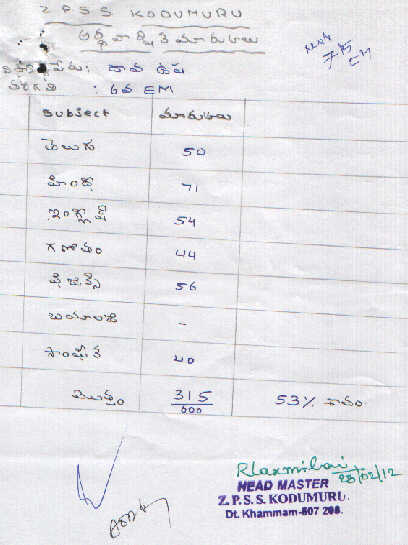 Z P S S KODUMURU
అర్ధ వార్షిక మార్కులు
పేరు:
తరగతి : 6వ EM
Subject మార్కులు
తెలుగు 50
హిందీ 71
ఇంగ్లీష్ 54
గణితం 44
ఫిజిక్స్ 56
బయాలజి -
సాంఘీక 40
మొత్తం 315/600 53% శాతం
RLaxmibai
28/02/12
HEAD MASTER
Z.P.S.S. KODUMURU.
Dt. Khammam-507 208.